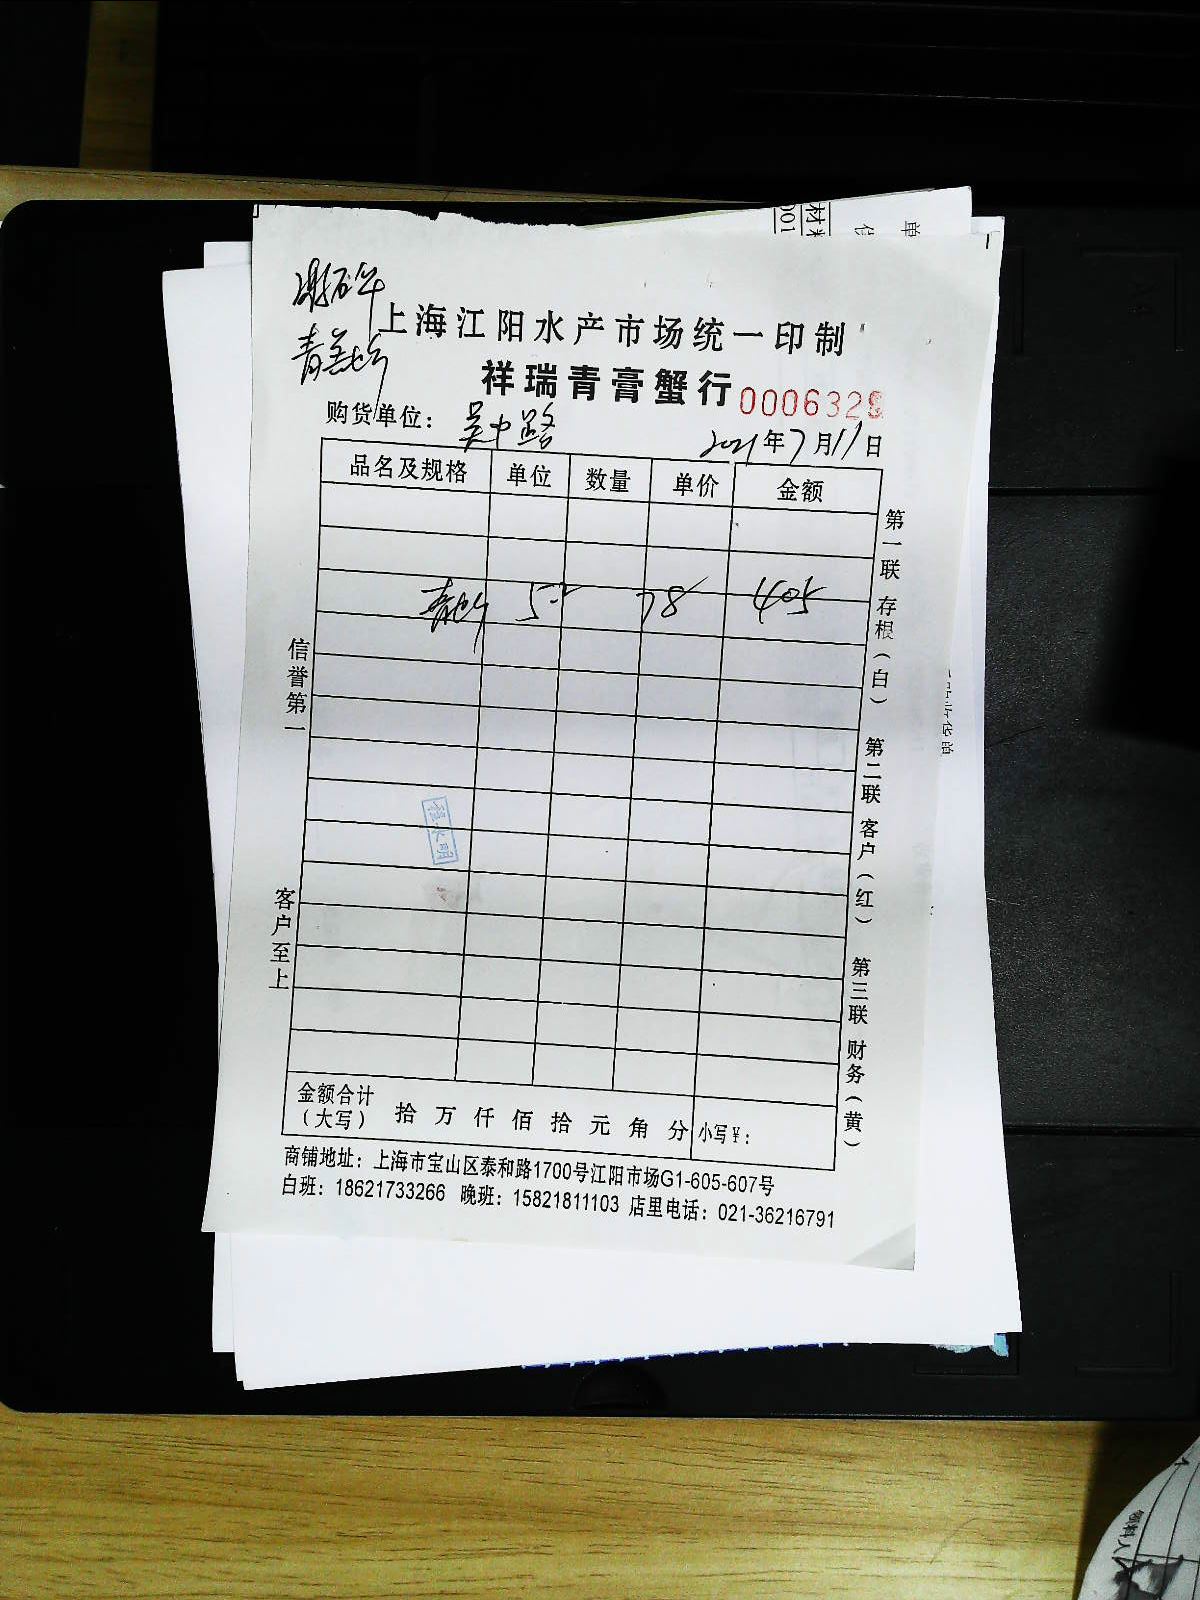 上海江阳水产市场统一印制
祥瑞青膏蟹行 0006329
购货单位： 吴中路 2021年7月11日
品名及规格 单位 数量 单价 金额
5.2 78 405
信誉第一
客户至上
第一联 存根（白）
第二联 客户（红）
第三联 财务（黄）
金额合计（大写） 拾 万 仟 佰 拾 元 角 分 小写￥：
商铺地址：上海市宝山区泰和路1700号江阳市场G1-605-607号
白班：18621733266 晚班：15821811103 店里电话：021-36216791